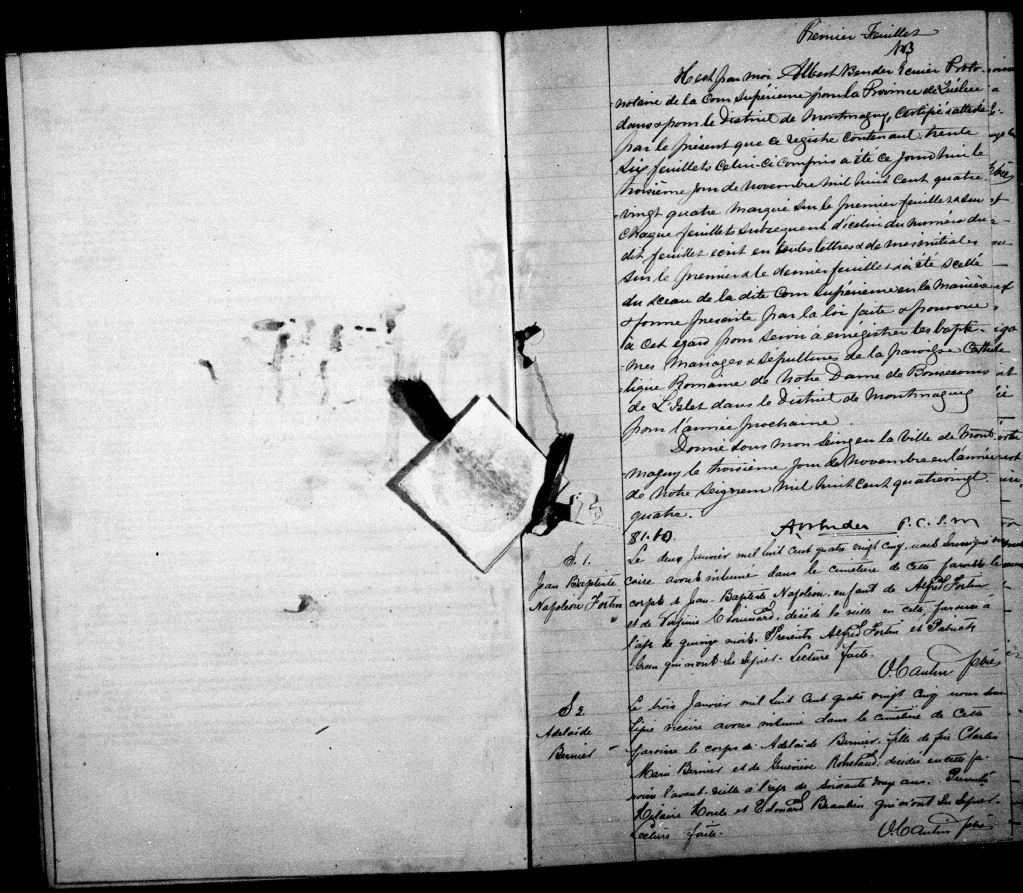 Premier Feuillet
AB
Il est par moi Albert Bender Ecuier Proto-
notaire de la Cour Supérieure pour la Province de Québec
dans & pour le District de Montmagny, Certifié & attesté
par le présent que ce registre contenant trente
six feuillets celui-ci compris a été ce jourd'hui le
troisième jour de Novembre mil huit cent quatre
vingt quatre marqué sur le premier feuillet & sur
chaque feuillets subsequent d'icelui du numéro du
dit feuillet écrit en toutes lettres & de mes initiales
sur le premier & le dernier feuillet & a été scellé
du sceau de la dite Cour Supérieure en la manière
& forme présente par la loi faite & pourvue
à cet égard pour servir à enrégistrer les baptê-
mes Mariages & sépultures de la paroisse Catho
lique Romaine de Notre Dame de Bonsecours
de L'Islet dans le District de Montmagny
pour l'année prochaine.
Donné sous mon seing en la ville de Mont
magny le troisième jour de Novembre en l'année
de Notre Seigneur mil huit cent quatrevingt
quatre.
A Bender P. C. S. M
S. 1.
Jean Baptiste
Napoléon Fortin
Le deux Janvier mil huit cent quatre vingt cinq, nous soussigné
vicaire avons inhumé dans le cimetière de cette paroisse le
corps de Jean-Baptiste Napoléon, enfant de Alfred Fortin
et de Virginie Chouinard, décédé la veille en cette paroisse à
l'age de quinze mois. Présents Alfred Fortin et Patrick
qui n'ont su signer. Lecture faite.
ptre
S 2.
Adelaïde
Bernier
Le trois Janvier mil huit cent quatre vingt cinq nous sous
signé vicaire avons inhumé dans le cimetière de cette
paroisse le corps de Adelaïde Bernier, fille de feu Charles
Marie Bernier et de Geneviève décédée en cette pa
roisse l'avant-veille à l'age de soixante ans. Présents
Hilaire et Edouard qui n'ont su signer.
Lecture faite.
ptre